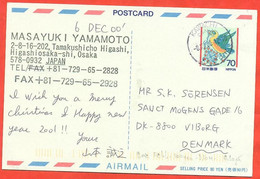 POSTCARD
6 DEC 00'
MASAYUKI YAMAMOTO
2-8-16-202, Tamakushicho Higashi,
Higashiosaka-shi, Osaka
578-0932 JAPAN
TEL/FAX +81-729-65-2828
FAX+81-729-65-2828
I wish you a merry
christmas & Happy new
year 2001!! Yours
山本 誠之
70
日本郵便
NIPPON
MR S.K. SÖRENSEN
SANCT MOGENS GADE 16
DK-8800 VIBORG
DENMARK
AIRMAIL